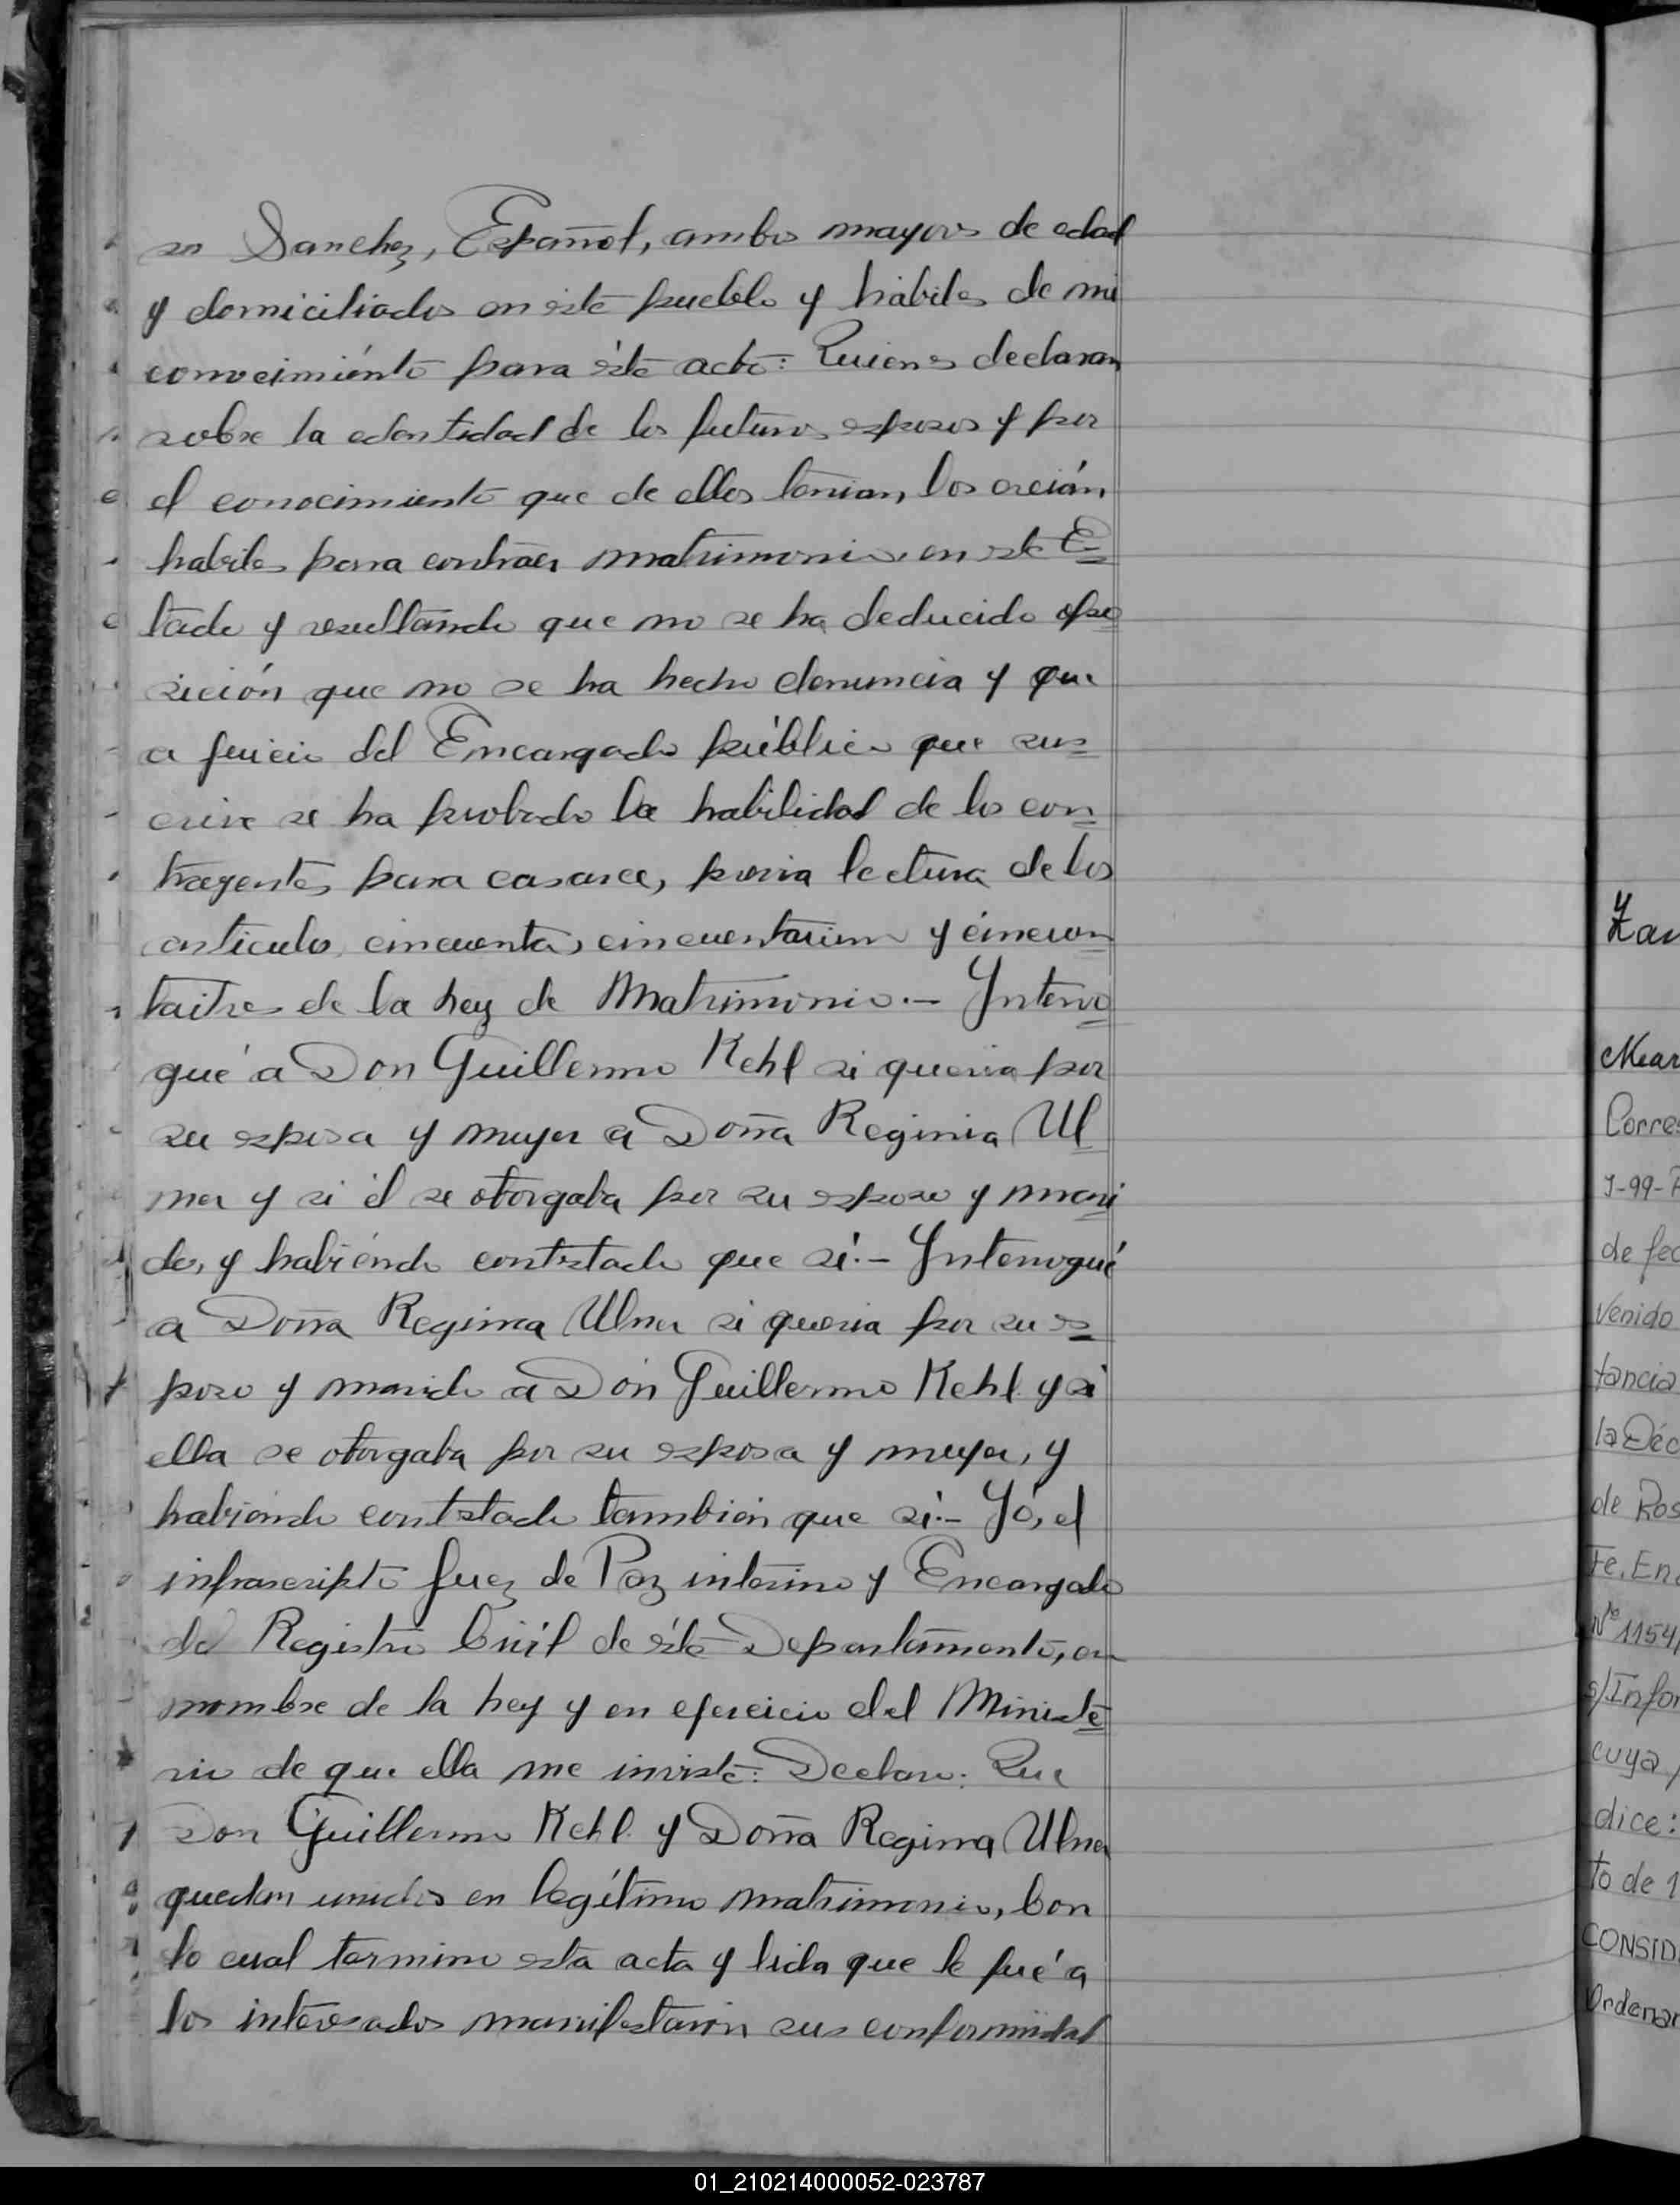 so Sanchez, Español, ambos mayores de edad
y domiciliados en éste pueblo y hábiles de mi
conocimiénto para éste acto: Quienes declaran
sobre la edentidad de los futuros esposos y por
el conocimiento que de ellos tenian, los creián
habiles para contraer matrimonio en este Es=
tado y resultando que no se ha deducido opo
sición que no se ha hecho denuncia y que
a juicio del Encargado público que sus=
crive se ha probado la habilidad de los con=
trayentes para casarce, previa lectura de los
articulos cincuenta, cincuentaiuno y cincuen
taitres de la Ley de Matrimonio.- Interro
gué a Don Guillermo Kehl si queria por
su esposa y muyer a Doña Reginia Ul
mer y si él se otorgaba por su esposo y mari
do, y habiéndo contestado que sí.- Interrogué
a Doña Regina Ulmer si queria por su es=
poso y marido a Don Guillermo Kehl y si
ella se otorgaba por su esposa y muyer, y
habiendo contestado tambien que si.- Yó, el
infrascripto Juez de Paz interino y Encargado
del Registro Civil de éste Departamento, en
nombre de la Ley y en ejercicio del Ministe
rio de que ella me inviste: Declaro: Que
Don Guillermo Kehl y Doña Regina Ulmer
quedan unidos en legítimo matrimonio, Con
lo cual termino esta acta y lida que le fué a
los interesados manifestaron sus conformidad
Corres
J-99-
de fec
Venido
tancia
la Déc
de Ros
Fe, En
Nº 1154,
s/Infor
cuya
dice:
to de 1
CONSID
Ordenar
01_210214000052-023787